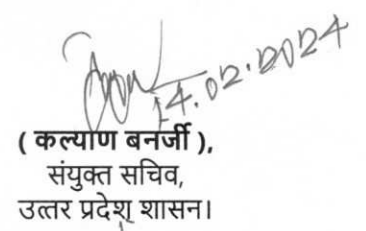 14.02.2024
( कल्याण बनर्जी ),
संयुक्त सचिव,
उत्तर प्रदेश शासन।